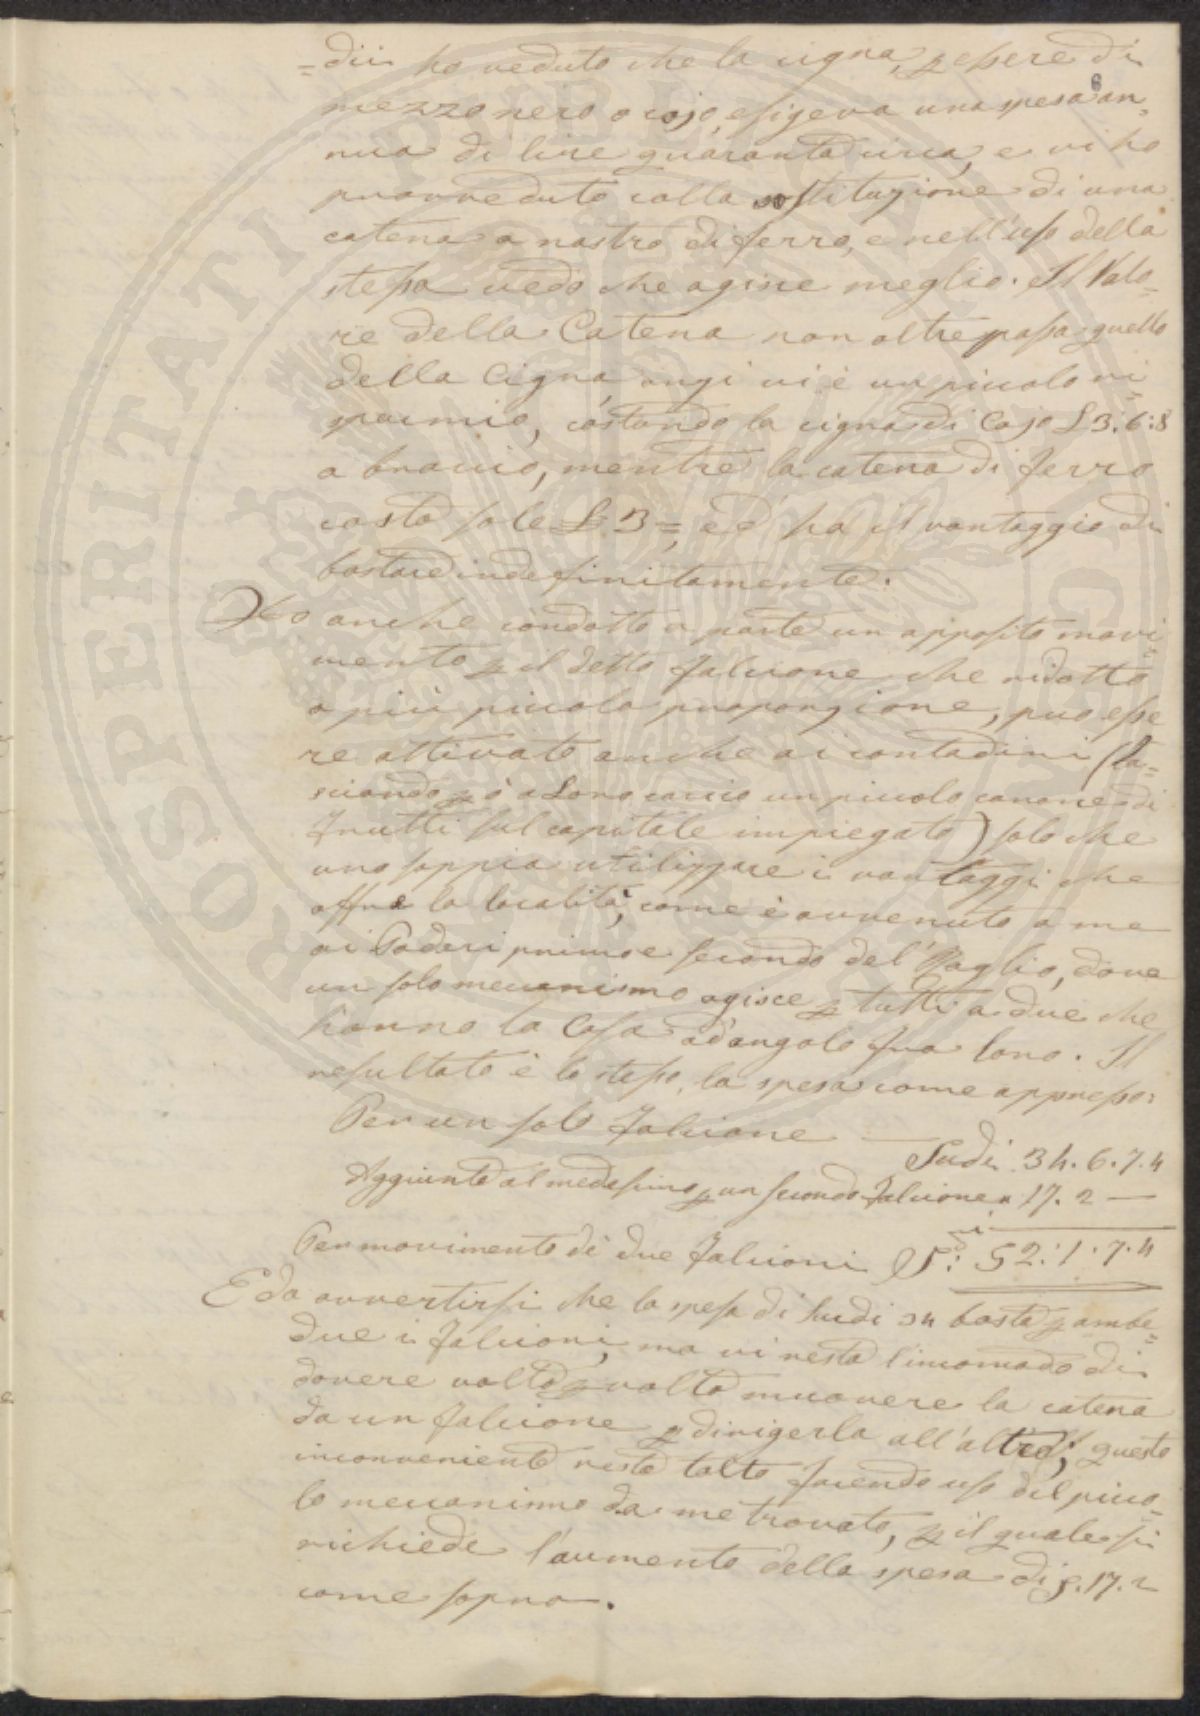 =dii ho veduto che la cigna, p essere di
6
mezzo nero o cojo, esigeva una spesa an-
nua di lire quaranta circa, e vi ho
provveduto colla sostituzione di una
catena a nastro di ferro, e nell'uso della
stessa vedo che agisce meglio. Il Valo=
re della Catena non oltrepassa quello
della Cigna, anzi vi è un piccolo ri=
sparmio, costando la cigna di Cojo £ 3:6:8
a braccio, mentre la catena di ferro
costa sole £. 3=, ed ha il vantaggio di
bastare indefinitamente.
Ho anche condotto a parte un apposito movi=
mento p il detto falcione che ridotto
a più piccola proporzione, può esse
re attivato anche ai contadini (la=
sciando p ò a Loro carico un piccolo canone di
frutti sul capitale impiegato) solo che
uno sappia utilizzare i vantaggi che
offre la località, come è avvenuto a me
ai Poderi primo e secondo del Maglio, dove
un solo mecanismo agisce p tutti a due che
hanno la Casa ad'angolo fra loro. Il
resultato è lo stesso, la spesa come appresso:
Per un solo falcione — Scudi 34. 6. 7. 4
Aggiunta al medesimo p un secondo falcione " 17. 2 —
Per movimento di due falcioni S.di 52: 1. 7. 4
E da avvertirsi che la spesa di Scudi 34 basta p ambe=
due i falcioni, ma vi resta l'incomodo di
dovere volta p volta muovere la catena
da un falcione p dirigerla all'altro; questo
inconveniente resta tolto facendo uso del picco=
lo mecanismo da me trovato, p il quale si
richiede l'aumento della spesa di S. 17. 2
come sopra.